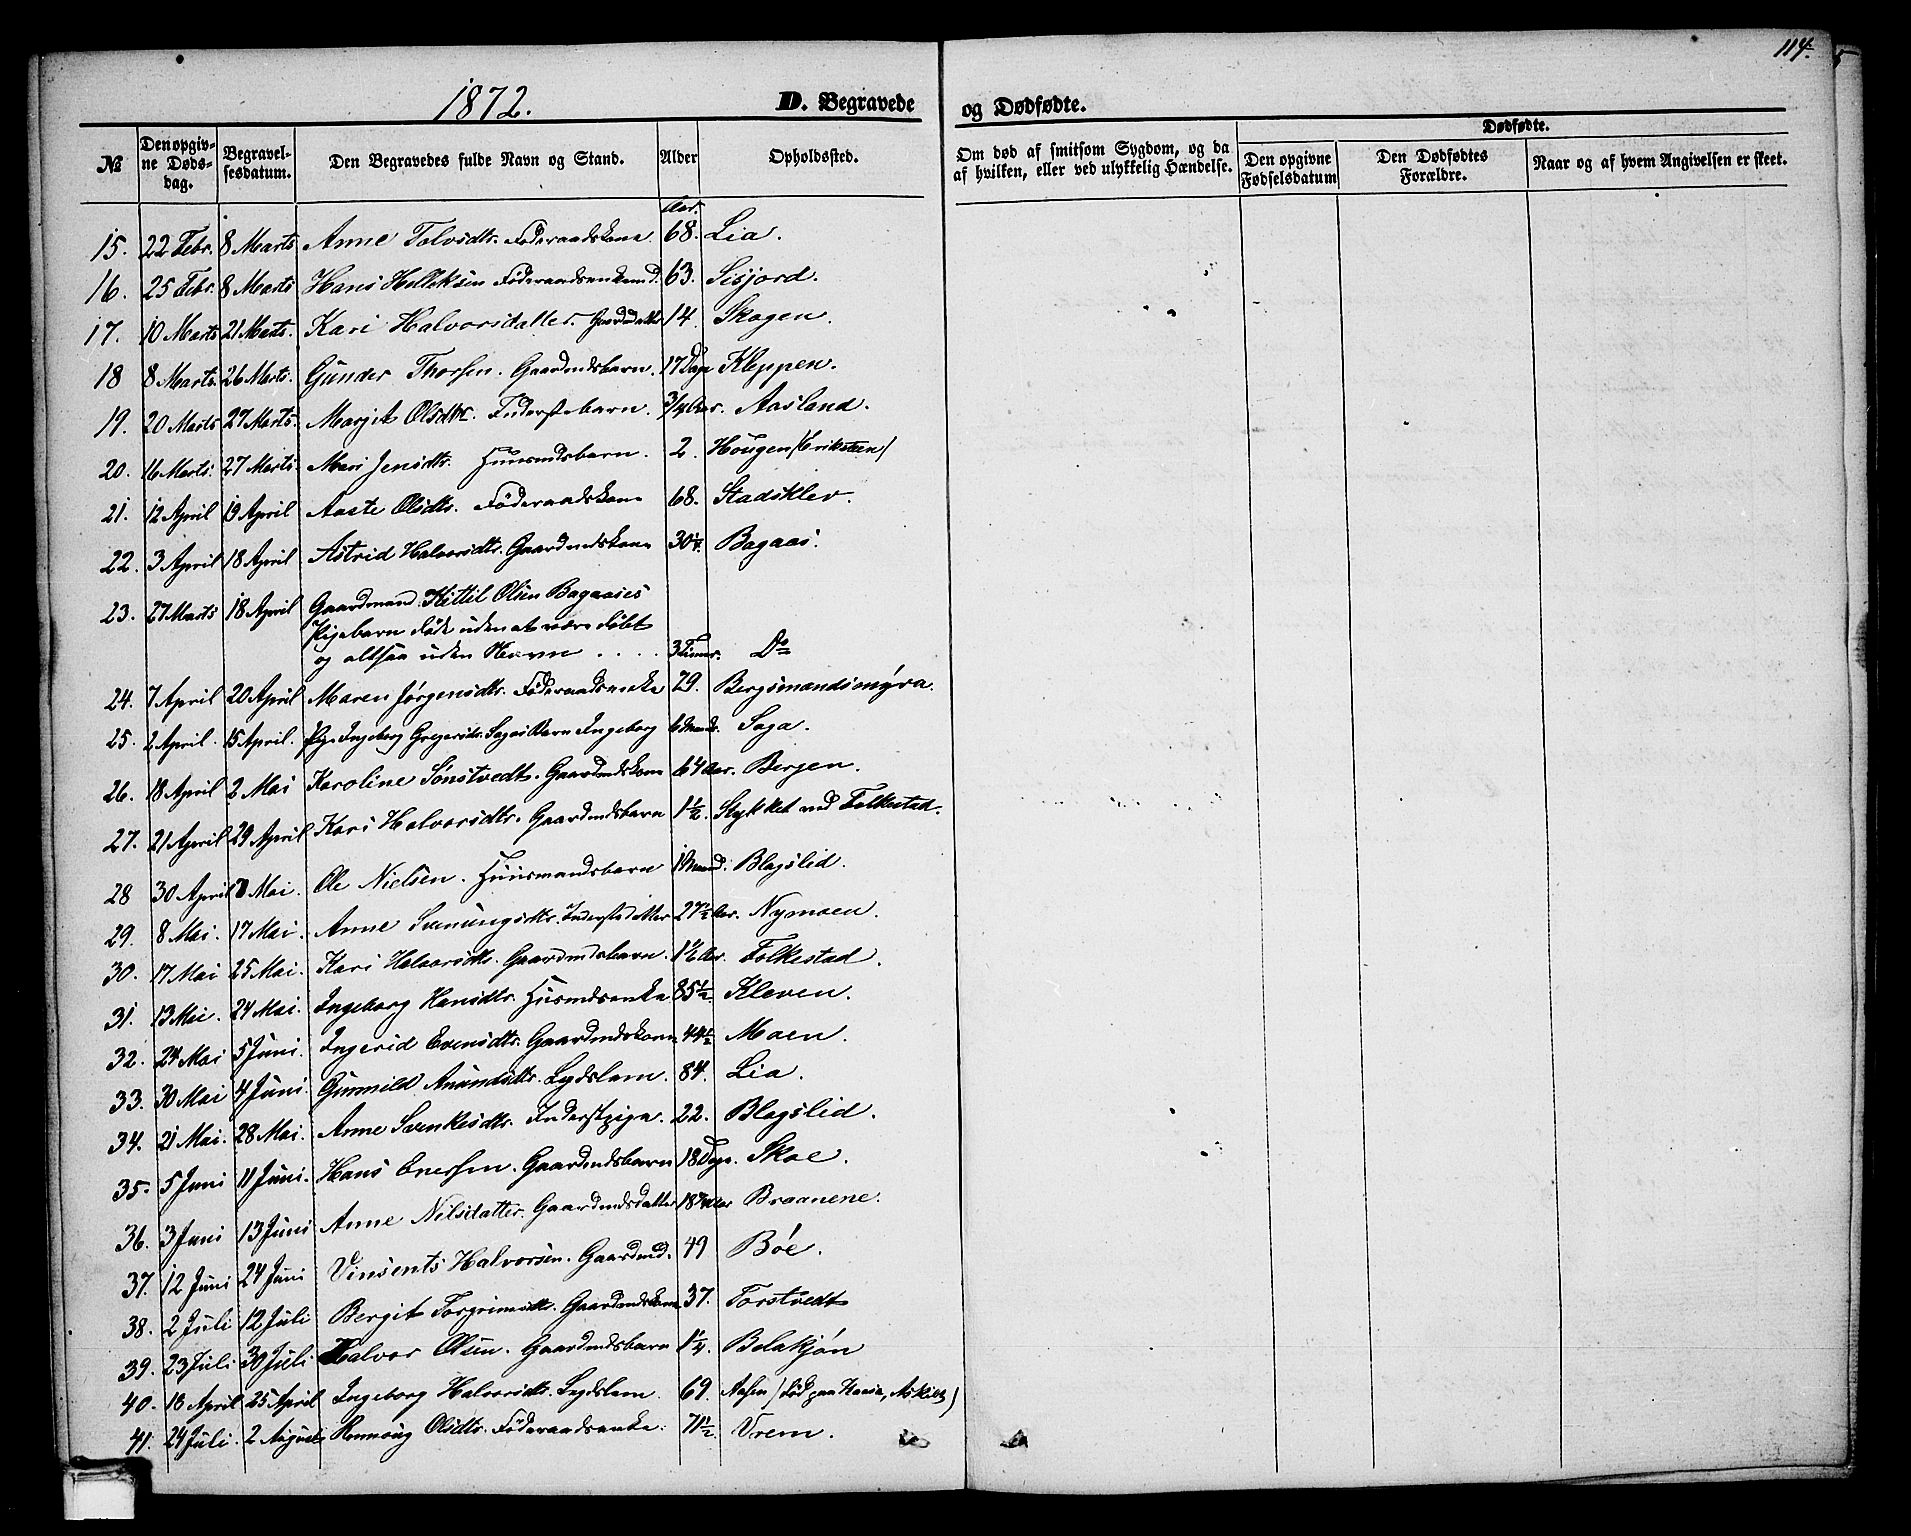 114.
1872. D. Begravede og Dødfødte.
№ Den opgivne Dødsdag. Begravelsesdatum. Den Begravedes fulde Navn og Stand. Alder Opholdssted. Om død af smitsom Sygdom, og da af hvilken, eller ved ulykkelig Hændelse. Dødfødte. Den opgivne Fødselsdatum Den Dødfødtes Forældre. Naar og af hvem Angivelsen er skeet.
Aar.
15. 22 Febr. 8 Marts Anne Tolvsdtr. Föderaadskone. 68. Lia.
16. 25 Febr. 8 Marts Hans Helleksen Föderaadsenkemd. 63. Sisjord.
17. 10 Marts 21 Marts. Kari Halvorsdatter. Gaardmdatter 14. Skogen.
18 8 Marts. 26 Marts. Gunder Thorsen. Gaardmdsbarn. 17 Dage Kleppen.
19. 20 Marts 27 Marts. Margit Olsdtr. Inderstebarn. 3/4 Aar. Aasland.
20. 16 Marts. 27 Marts. Mari Jensdtr. Huusmdsbarn. 2. Hougen /Eriksteen/
21. 12 April 19 April Aaste Olsdtr. Föderaadskone 68. Stadsklev.
22. 3 April 18 April Astrid Halvorsdtr. Gaardmdskone 30 1/4. Bagaas.
23. 27 Marts 18 April Gaardmand Kittil Olsen Bagaases
Pigebarn födt uden at være döbt
og altsaa uden Navn . . . . 3 Timer. Do
24. 7 April 20 April Maren Jørgensdtr. Föderaadsenke 79. Bergsmandsmyra.
25. 2 April. 15 April. Pige Ingeborg Gregersdtr. Sagas Barn Ingeborg 6 Maand. Saga.
26. 18 April 2 Mai Karoline Sønstvedt. Gaardmdskone 64 Aar. Bergen.
27. 21 April 29 April Kari Halvorsdtr. Gaardmdsbarn 1 1/2. Stykket ved Folkestad.
28 30 April 7 Mai. Ole Nielsen. Huusmandsbarn 1 Maand. Blagslid.
29. 8 Mai. 17 Mai. Anne Svenungsdtr. Inderstdatter 27 1/2 Aar. Nymoen.
30. 17 Mai 25 Mai. Kari Halvorsdtr. Gaardmdsbarn. 1 1/2 Aar. Folkestad.
31. 13 Mai. 24 Mai. Ingeborg Hansdtr. Husmdsenke 85 1/2 Kleven.
32. 24 Mai 5 Juni. Ingerid Evensdtr. Gaardmdskone 44 1/2 Moen.
33. 30 Mai 4 Juni. Gunnild Anundsdtr. Lægdslem. 84. Lia.
34. 21 Mai. 28 Mai. Anne Svenkesdtr. Inderstpige. 22. Blagslid.
35. 5 Juni 11 Juni. Hans Enersen. Gaardmdsbarn 18 Dage. Skoe.
36. 3 Juni 13 Juni Anne Nilsdatter. Gaardmdsdatter 18 3/4 Aar Braanene.
37. 12 Juni 24 Juni Vinsents Halvorsen. Gaardmd. 49 Bøe.
38. 2 Juli 12 Juli Bergit Torgrimsdtr. Gaardmdskone 37. Torstvedt
39. 23 Juli 30 Juli Halvor Olsen. Gaardmdsbarn 1 1/4. Bolakjøn
40. 16 April 25 April Ingeborg Halvorsdtr. Lægdslem. 69. Aasen /död paa Kaasa,
41. 24 Juli. 2 August Ronnoug Olsdtr. Föderaadsenke. 71 1/2. Vrem.